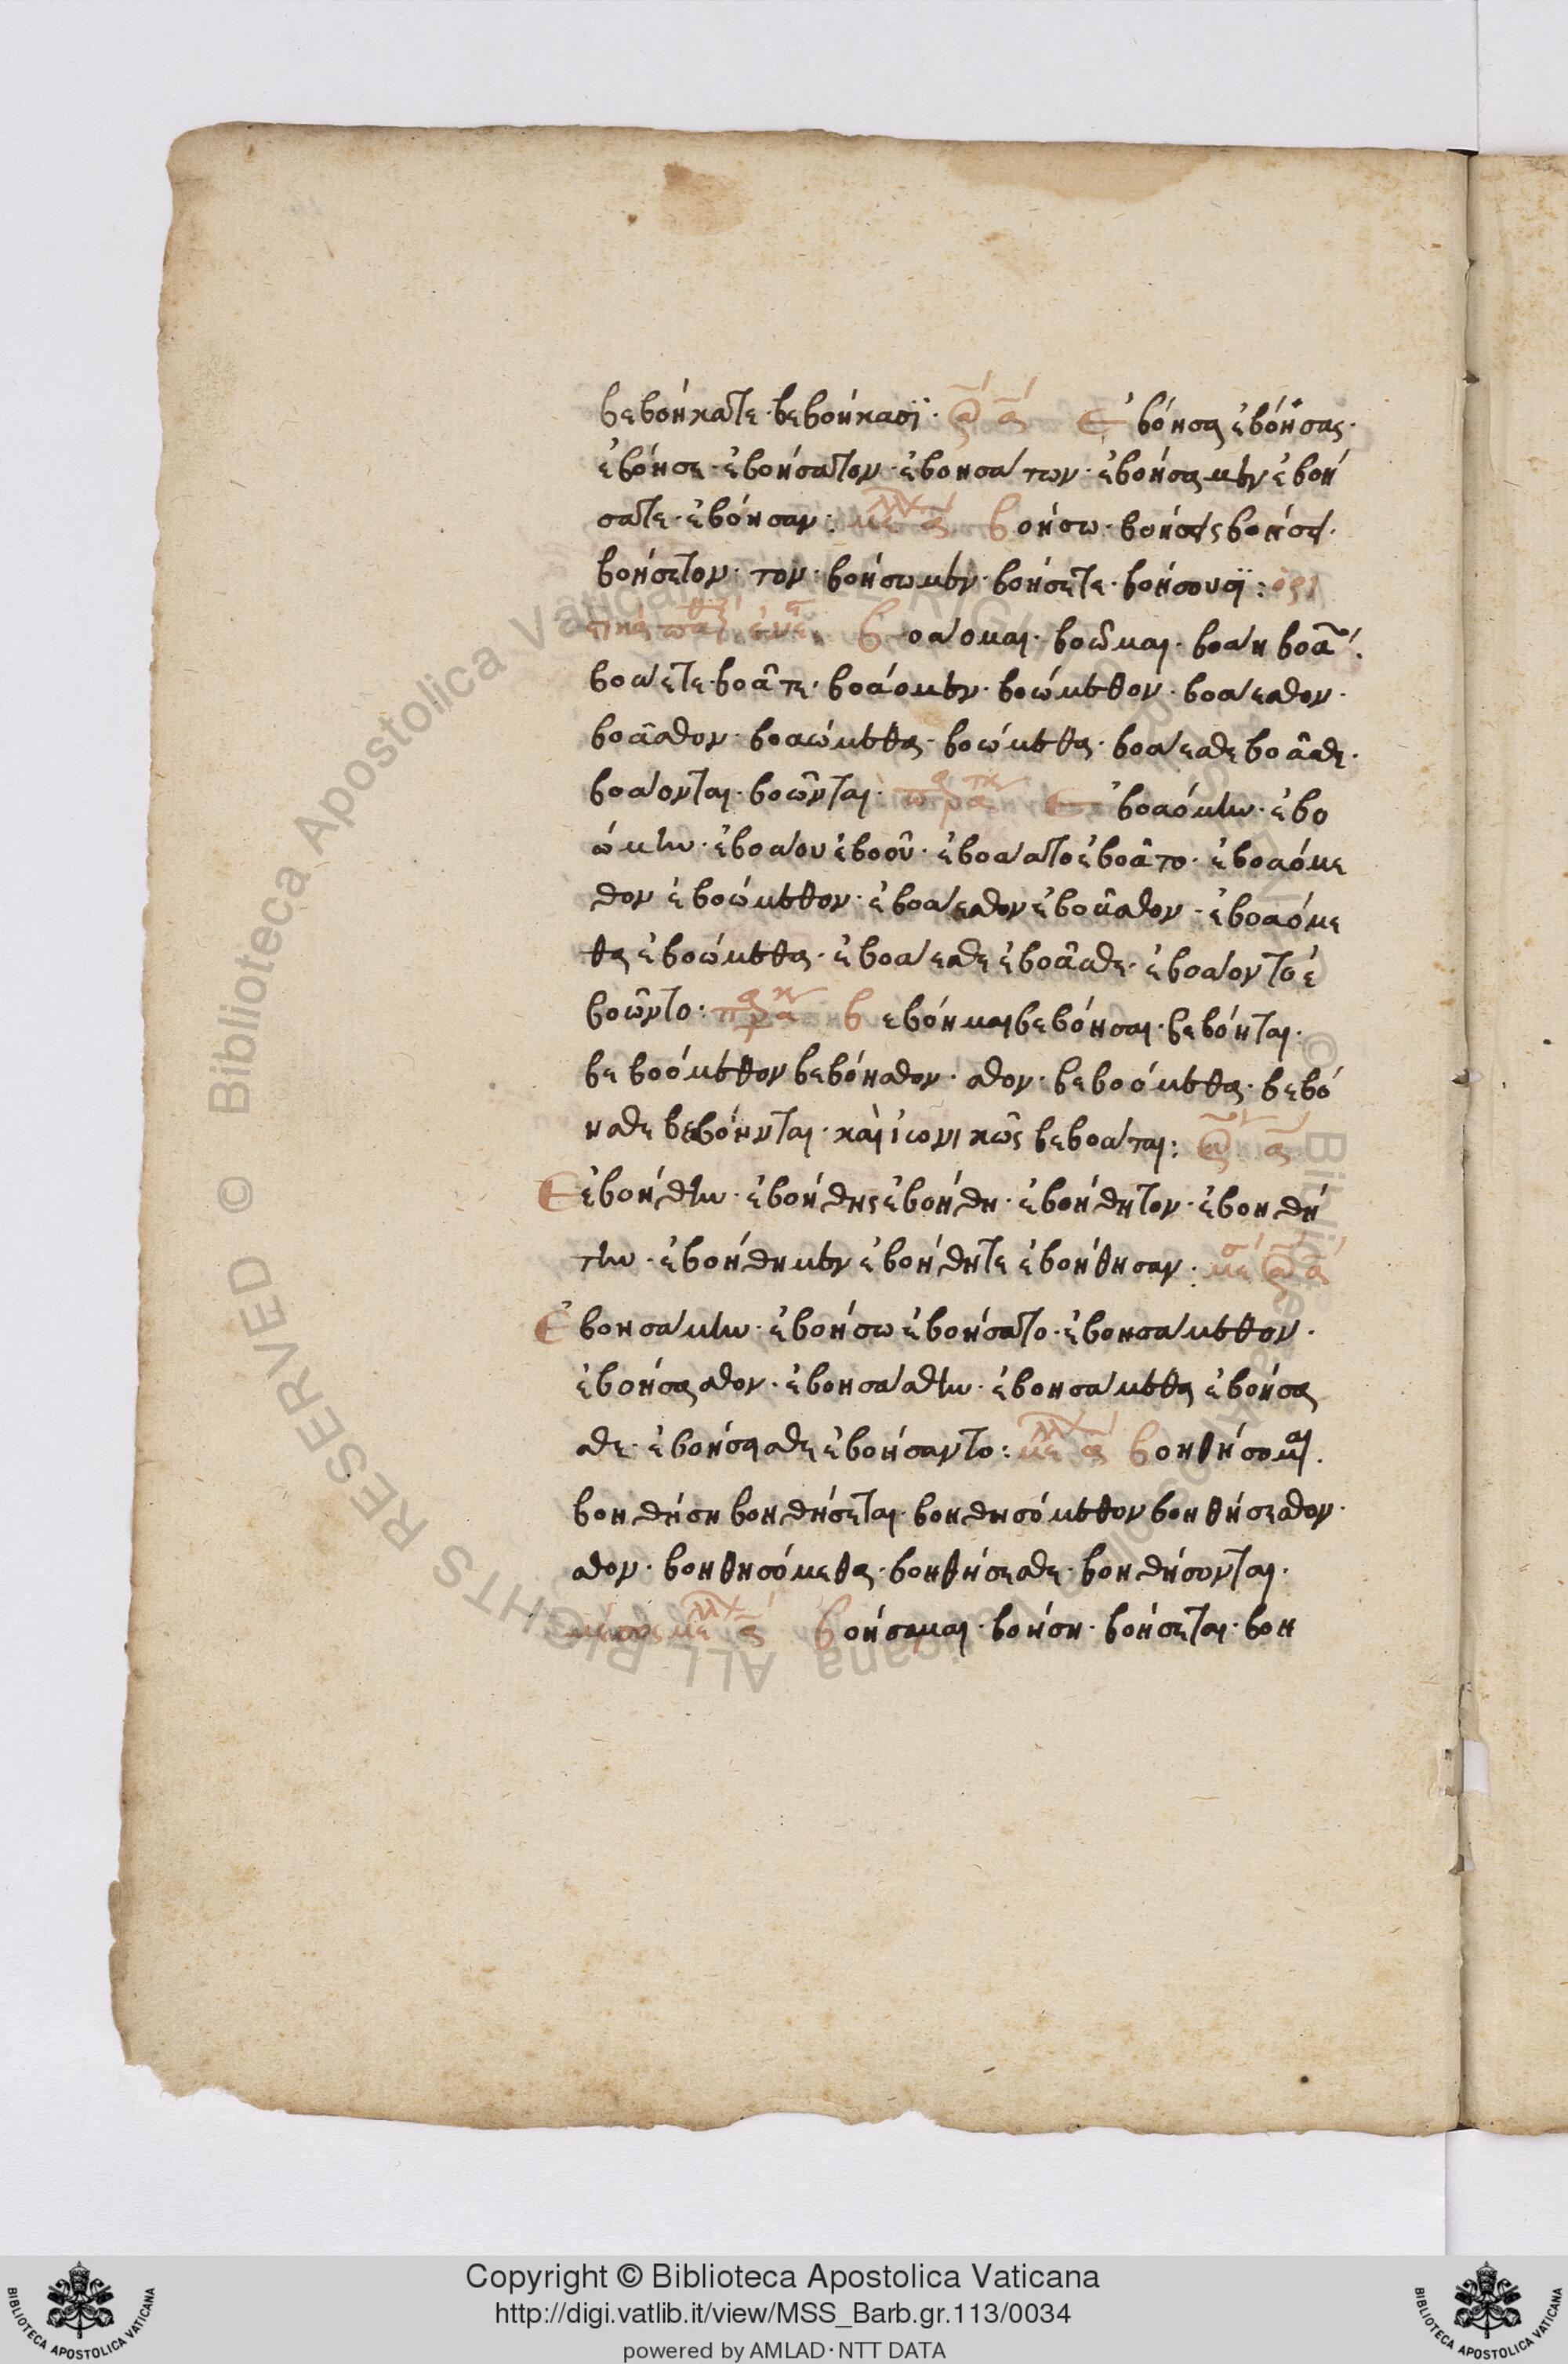 βεβοήκατε· βεβοήκασϊ· ἀό ά ἐβόησα ἐβόησας·
ἐβόησε· ἐβοήσατον· ἐβοησάτων· ἐβοήσαμεν ἐβοή
σατε· ἐβόησαν: με ά βοήσω· βοήσεις βοήσει·
βοήσετον· τον· βοήσωμεν· βοήσετε· βοήσουσϊ: ὁρι
βοάομαι· βοῶμαι· βοάη βοᾶ·
βοάετε· βοᾶτε· βοάομεν· βοώμεθον· βοάεσθον·
βοᾶσθον· βοαώμεθα· βοώμεθα· βοάεσθε βοᾶσθε·
βοάονται· βοῶνται· παρατκ ἐβοαόμην· ἐβο
ώμην· ἐβοάου ἐβοοῦ· ἐβοάατο ἐβοᾶτο· ἐβοαόμε
θον ἐβοώμεθον· ἐβοάεσθον ἐβοᾶσθον· ἐβοαόμε
θα ἐβοώμεθα· ἐβοάεσθε ἐβοᾶσθε· ἐβοάοντο ἐ
βοῶντο: παρακ βεβόημαι βεβόησαι· βεβόηται·
βεβοόμεθον βεβόησθον· σθον· βεβοόμεθα· βεβό
ησθε βεβόηνται· καὶ ἰωνικῶς βεβοάται: ἀό ά
Εἐβοήθην· ἐβοήθης ἐβοήθη· ἐβοήθητον· ἐβοηθή
την· ἐβοήθημεν ἐβοήθητε ἐβοήθησαν· με ἀό ά
Ἐβοησάμην· ἐβοήσω ἐβοήσατο· ἐβοησάμεθον·
ἐβοήσασθον· ἐβοησάσθην· ἐβοησάμεθα ἐβοήσα
σθε· ἐβοήσασθε ἐβοήσαντο: με ά βοηθήσομαι·
βοηθήση βοηθήσεται· βοηθησόμεθον βοηθήσεσθον·
σθον· βοηθησόμεθα· βοηθήσεσθε· βοηθήσονται·
μέσος με ά βοήσομαι· βοήση· βοήσεται· βοη
Copyright © Biblioteca Apostolica Vaticana
http://digi.vatlib.it/view/MSS_Barb.gr.113/0034
powered by AMLAD·NTT DATA